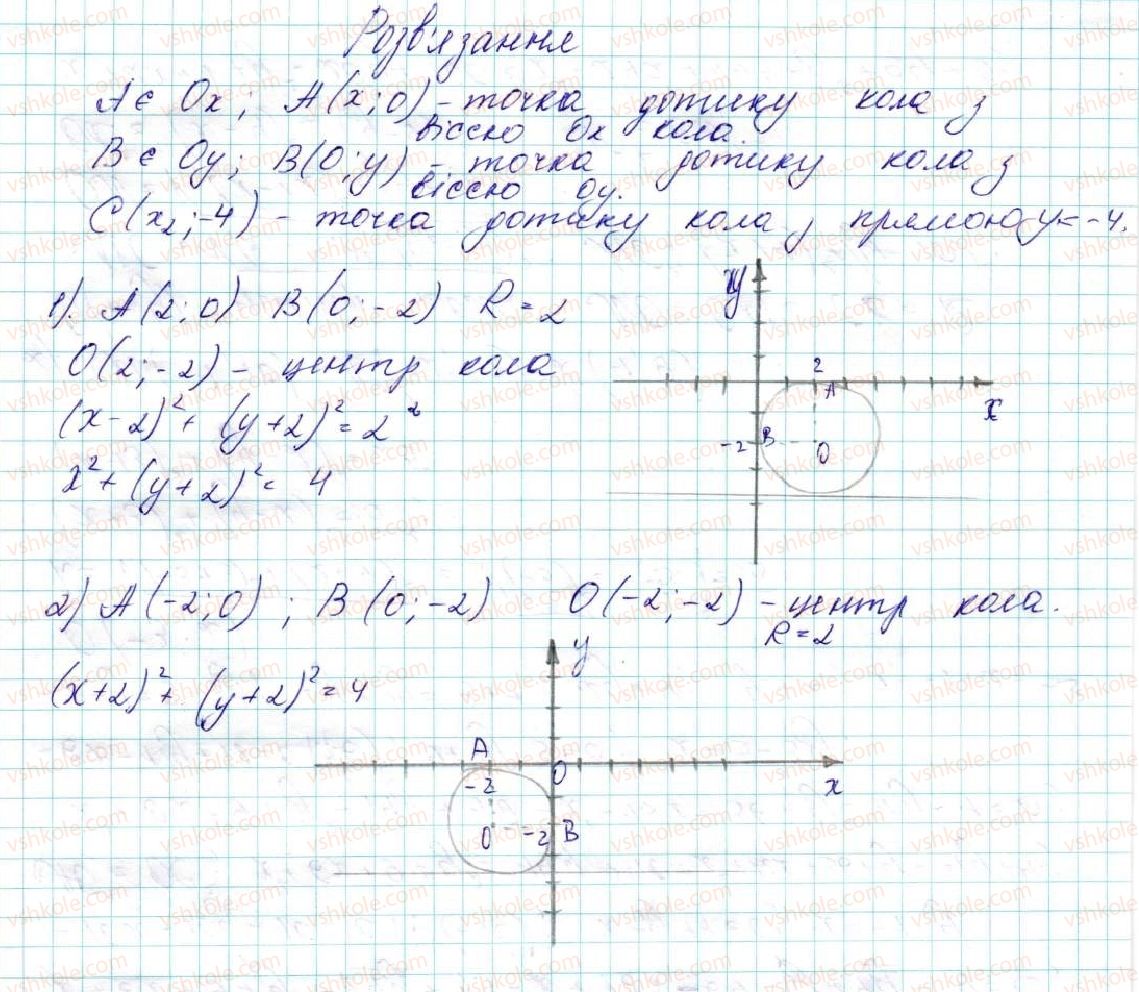 Розв'язання
A є Ox; A(x;0) - точка дотику кола з
віссю Ox кола.
B є Oy; B(0;y) - точка дотику кола з
віссю Oy.
C(x₂;-4) - точка дотику кола з прямою y=-4.
1). A(2;0) B(0;-2) R=2
O(2;-2) - центр кола
(x-2)²+(y+2)²=2²
x²+(y+2)²=4
y
2
A
x
-2 B
O
2) A(-2;0); B(0;-2) O(-2;-2) - центр кола.
R=2
(x+2)²+(y+2)²=4
y
A
O
-2
x
O -2 B
vshkole.com